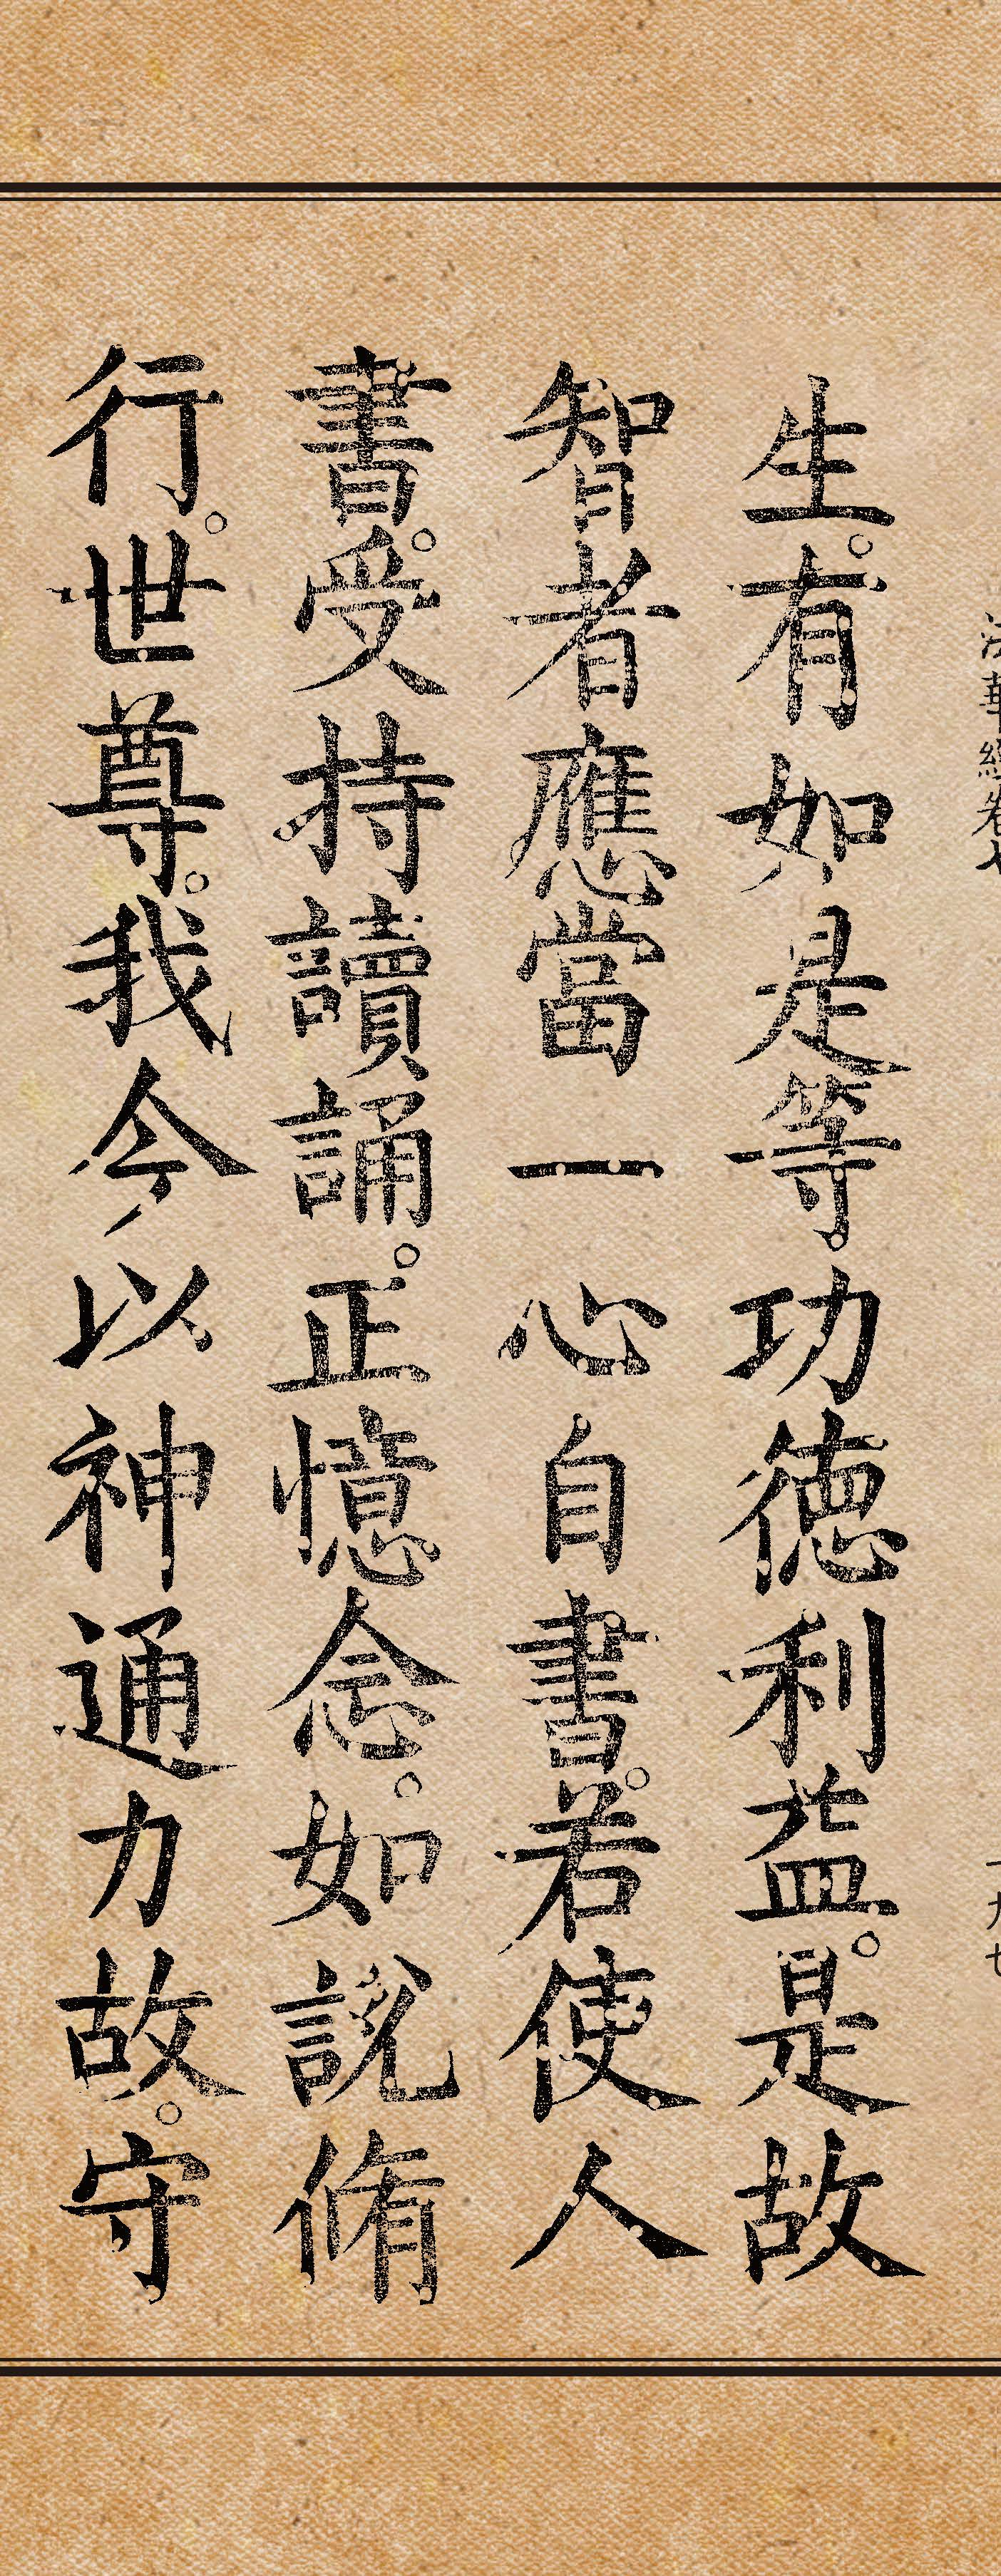 法華經卷七
一九七
生。有如是等功德利益。是故
智者應當一心自書。若使人
書。受持讀誦。正憶念。如說脩
行。世尊。我今以神通力故。守